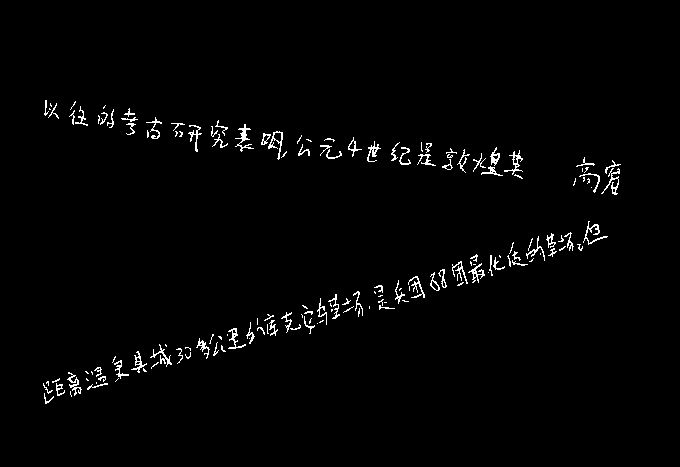 以往的考古研究表明,公元4世纪是敦煌莫
高窟
距离温泉县城30多公里的库克安草场,是兵团88团最优质的草场。但